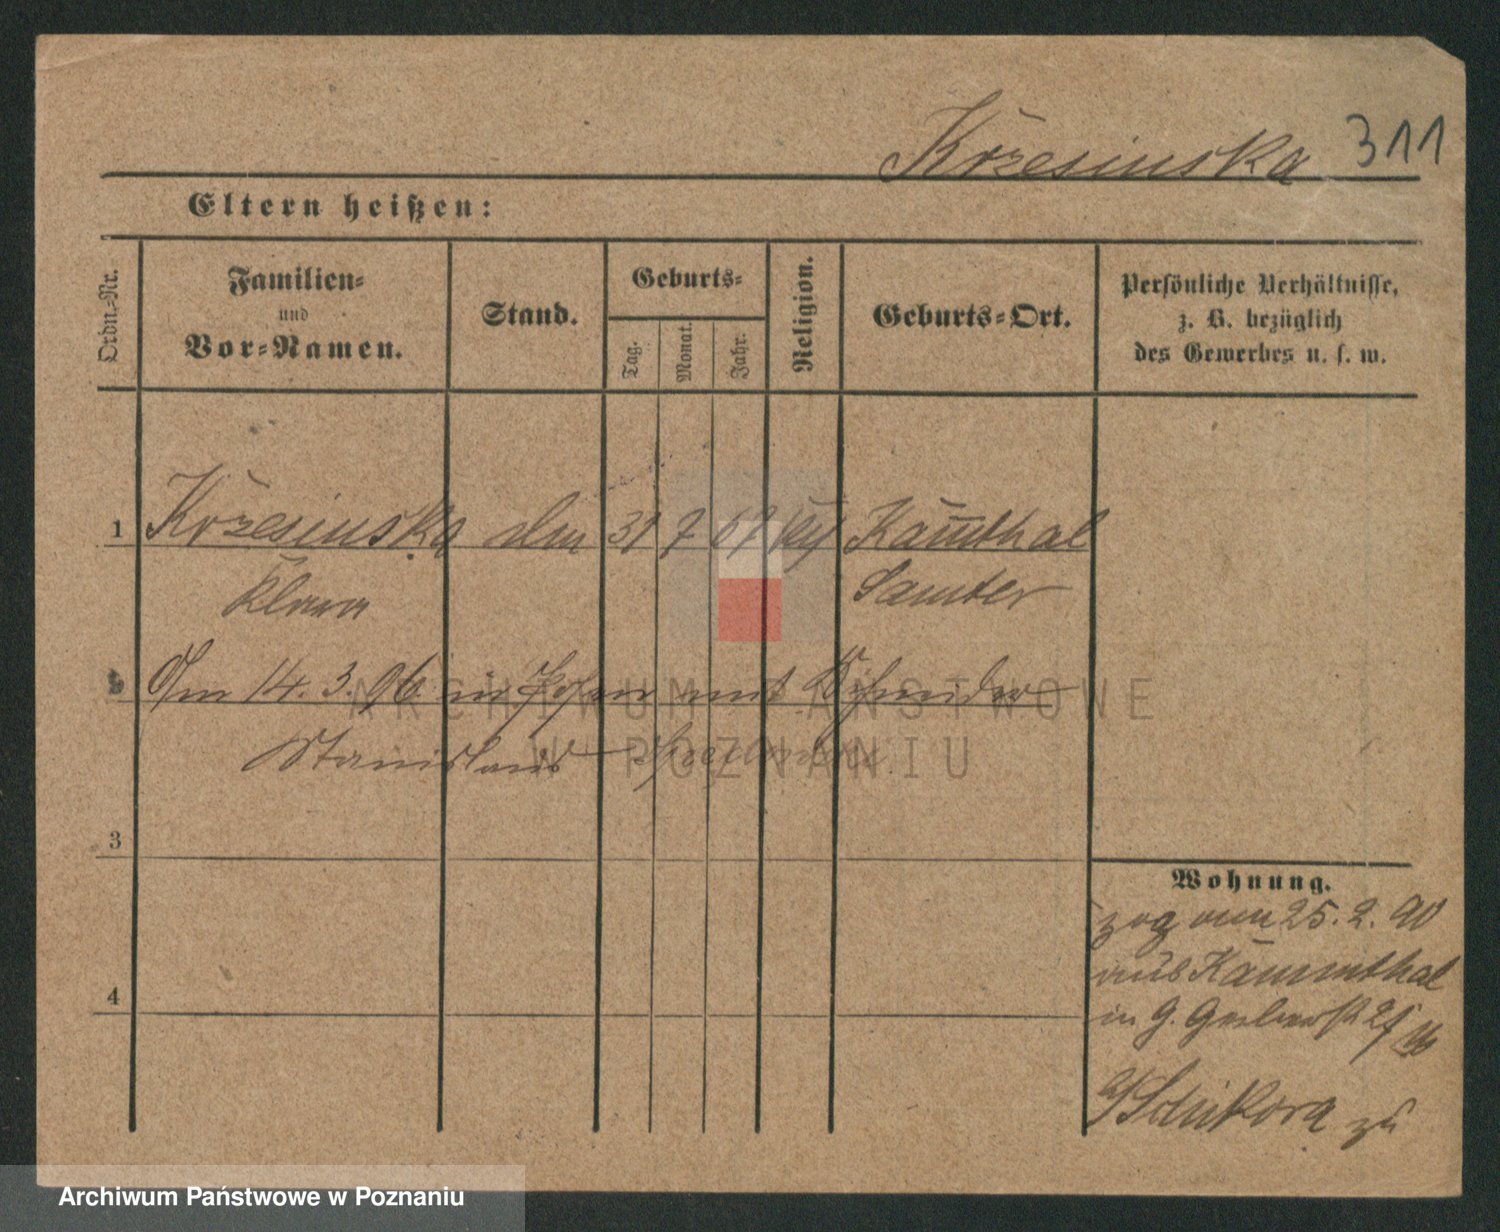 Krzesinska 311
Eltern heißen:
Ordn.-Nr.
Familien-
und
Vor-Namen.
Stand.
Geburts-
Tag.
Monat.
Jahr.
Religion.
Geburts-Ort.
Persönliche Verhältnisse,
z. B. bezüglich
des Gewerbes u. s. w.
1 Krzesinska 31 7 67 Kamthal
Klara Samter
Am 14. 3. 96 in Posen mit Schneider
Stanislaus
3
4
Wohnung.
zog am 25. 2. 90
aus Kammthal
in G.
zu
ARCHIWUM PAŃSTWOWE
W POZNANIU
Archiwum Państwowe w Poznaniu